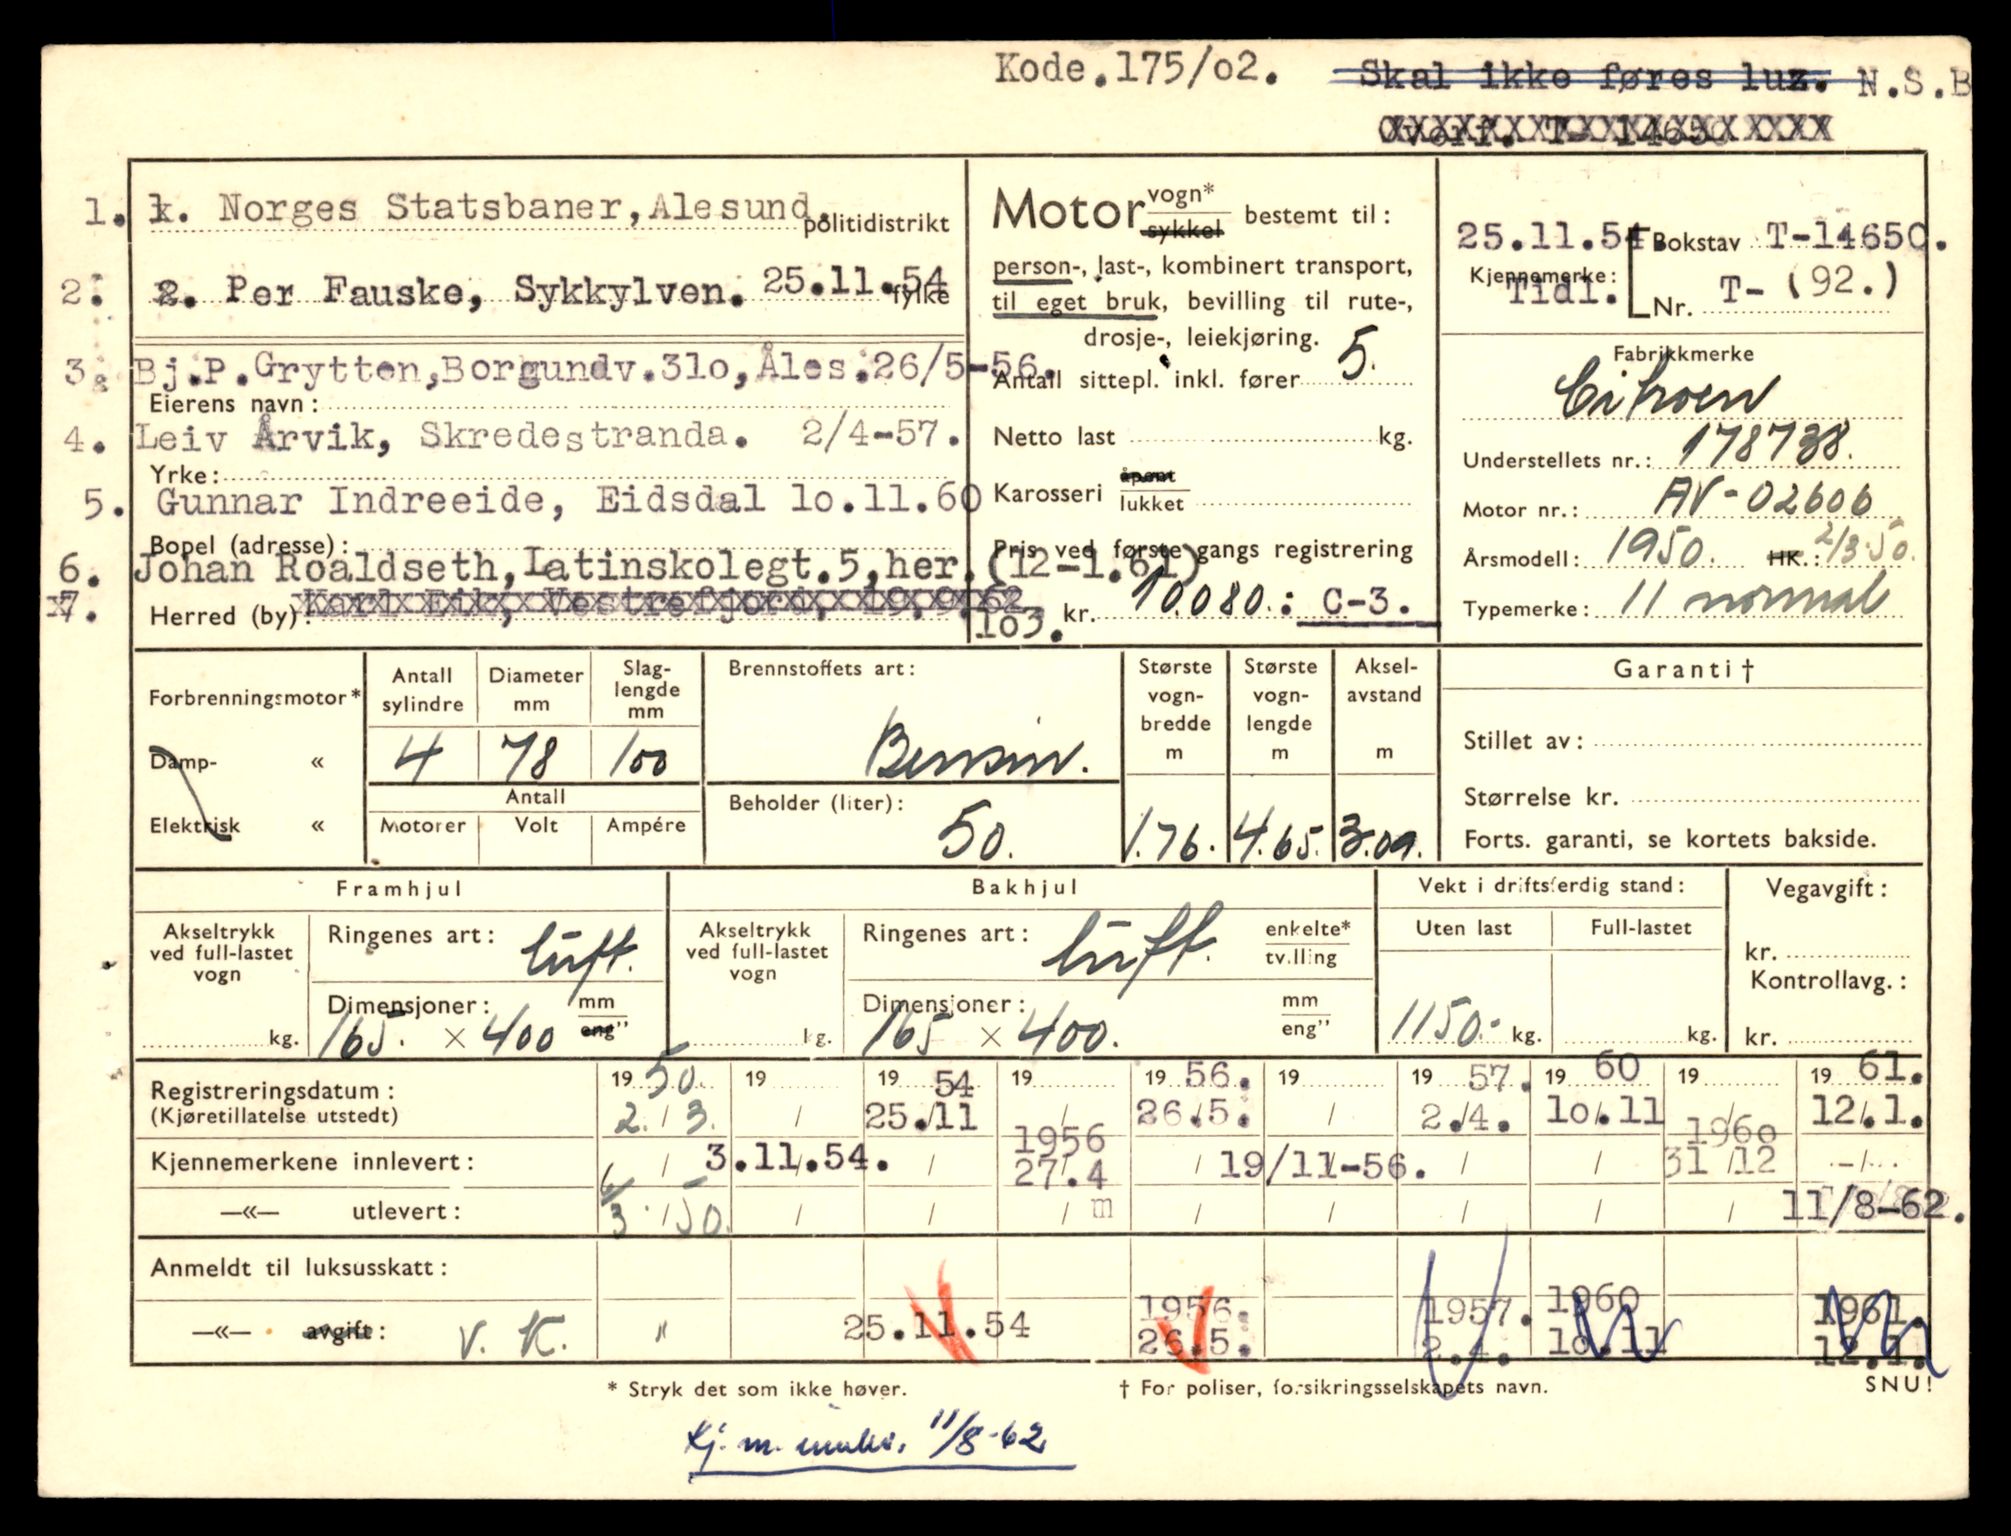 Kode.175/o2. Skal ikke føres lux. N.S.B
Overf. T- 14650
1. k. Norges Statsbaner, Alesund. politidistrikt
2. 2. Per Fauske, Sykkylven. 25.11.54 fylke
3. Bj.P.Grytten,Borgundv.31o,Åles.26/5-56.
Eierens navn:
4. Leiv Årvik, Skredestranda. 2/4-57.
Yrke:
5. Gunnar Indreeide, Eidsdal 1o.11.60
Bopel (adresse):
6. Johan Roaldseth,Latinskolegt.5,her.(12-1.61)
7. Herred (by): Karl Eik, Vestrefjord, 19.9.62
1o3.
Motor vogn* sykkel bestemt til:
person-, last-, kombinert transport,
til eget bruk, bevilling til rute-,
drosje-, leiekjøring.
Antall sittepl. inkl. fører 5.
Netto last kg.
Karosseri åpent lukket
Pris ved første gangs registrering
kr. 10.080.: C-3.
25.11.54 Bokstav T-14650.
Kjennemerke:
Tidl. Nr. T- (92.)
Fabrikkmerke
Citroen
Understellets nr.: 178738.
Motor nr.: AV-02606
Årsmodell: 1950. HK.: 2/3.50.
Typemerke: 11 normal
Forbrenningsmotor*
Damp- «
Elektrisk «
Antall sylindre 4
Diameter mm 78
Slaglengde mm 100
Antall
Motorer Volt Ampére
Brennstoffets art:
Bensin.
Beholder (liter):
50.
Største vogn-bredde m 1.76.
Største vogn-lengde m 4.65.
Aksel-avstand m 3.09.
Garanti †
Stillet av:
Størrelse kr.
Forts. garanti, se kortets bakside.
Framhjul
Akseltrykk ved full-lastet vogn
kg.
Ringenes art: luft.
Dimensjoner: mm eng”
165. × 400
Bakhjul
Akseltrykk ved full-lastet vogn
kg.
Ringenes art: luft. enkelte* tvilling
Dimensjoner: mm eng”
165 × 400.
Vekt i driftsferdig stand:
Uten last Full-lastet
1150.- kg. kg.
Vegavgift:
kr.
Kontrollavg.:
kr.
Registreringsdatum: 19 50. 19 19 54 19 19 56. 19 19 57. 19 60 19 19 61.
(Kjøretillatelse utstedt) 2. / 3. / 25./11 / 26.5. / 2./4. 1o.11 / 12.1.
Kjennemerkene innlevert: / 3.11.54. / 1956 27.4 / 19/11-56. / / 1960 31/12 -/-
—«— utlevert: 6/3.50. / / / m / / / / / 11/8-62.
Anmeldt til luksusskatt:
—«— avgift: V. K. " 25.11.54 1956. 26.5. 1957. 2.4. 1960 10.11 1961. 12.1.
* Stryk det som ikke høver. † For poliser, forsikringsselskapets navn. SNU!
11/8-62